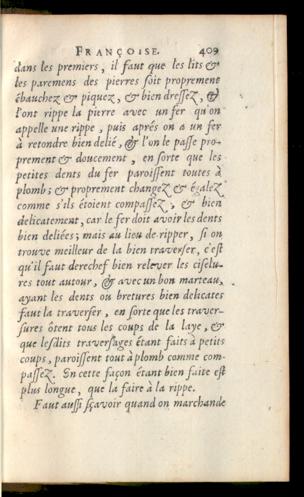 FRANÇOISE. 409
dans les premiers, il faut que les lits &
les paremens des pierres soit proprement
ébauchez & piquez, & bien dressez, &
l'ont rippe la pierre avec un fer qu'on
appelle une rippe, puis aprés on a un fer
à retondre bien delié, & l'on le passe pro-
prement & doucement, en sorte que les
petites dents du fer paroissent toutes à
plomb; & proprement changez & égalez
comme s'ils étoient compassez, & bien
delicatement, car le fer doit avoir les dents
bien deliées; mais au lieu de ripper, si on
trouve meilleur de la bien traverser, c'est
qu'il faut derechef bien relever les ciselu-
res tout autour, & avec un bon marteau,
ayant les dents ou bretures bien delicates
faut la traverser, en sorte que les traver-
sures ôtent tous les coups de la laye, &
que lesdits traversages étant faits à petits
coups, paroissent tout à plomb comme com-
passez. En cette façon étant bien faite est
plus longue, que la faire à la rippe.
Faut aussi sçavoir quand on marchande